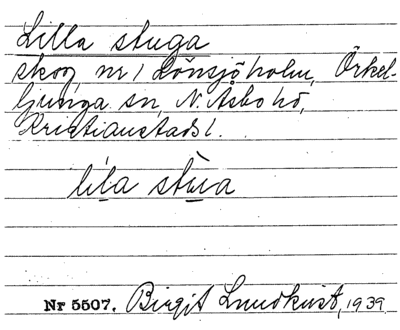 Lilla stuga
skog, nr 1 Lönsjöholm, Örkel-
ljunga sn, N. Åsbo hd,
Kristianstads l.
lila stua
Nr 5507. Birgit Lundkvist, 1939